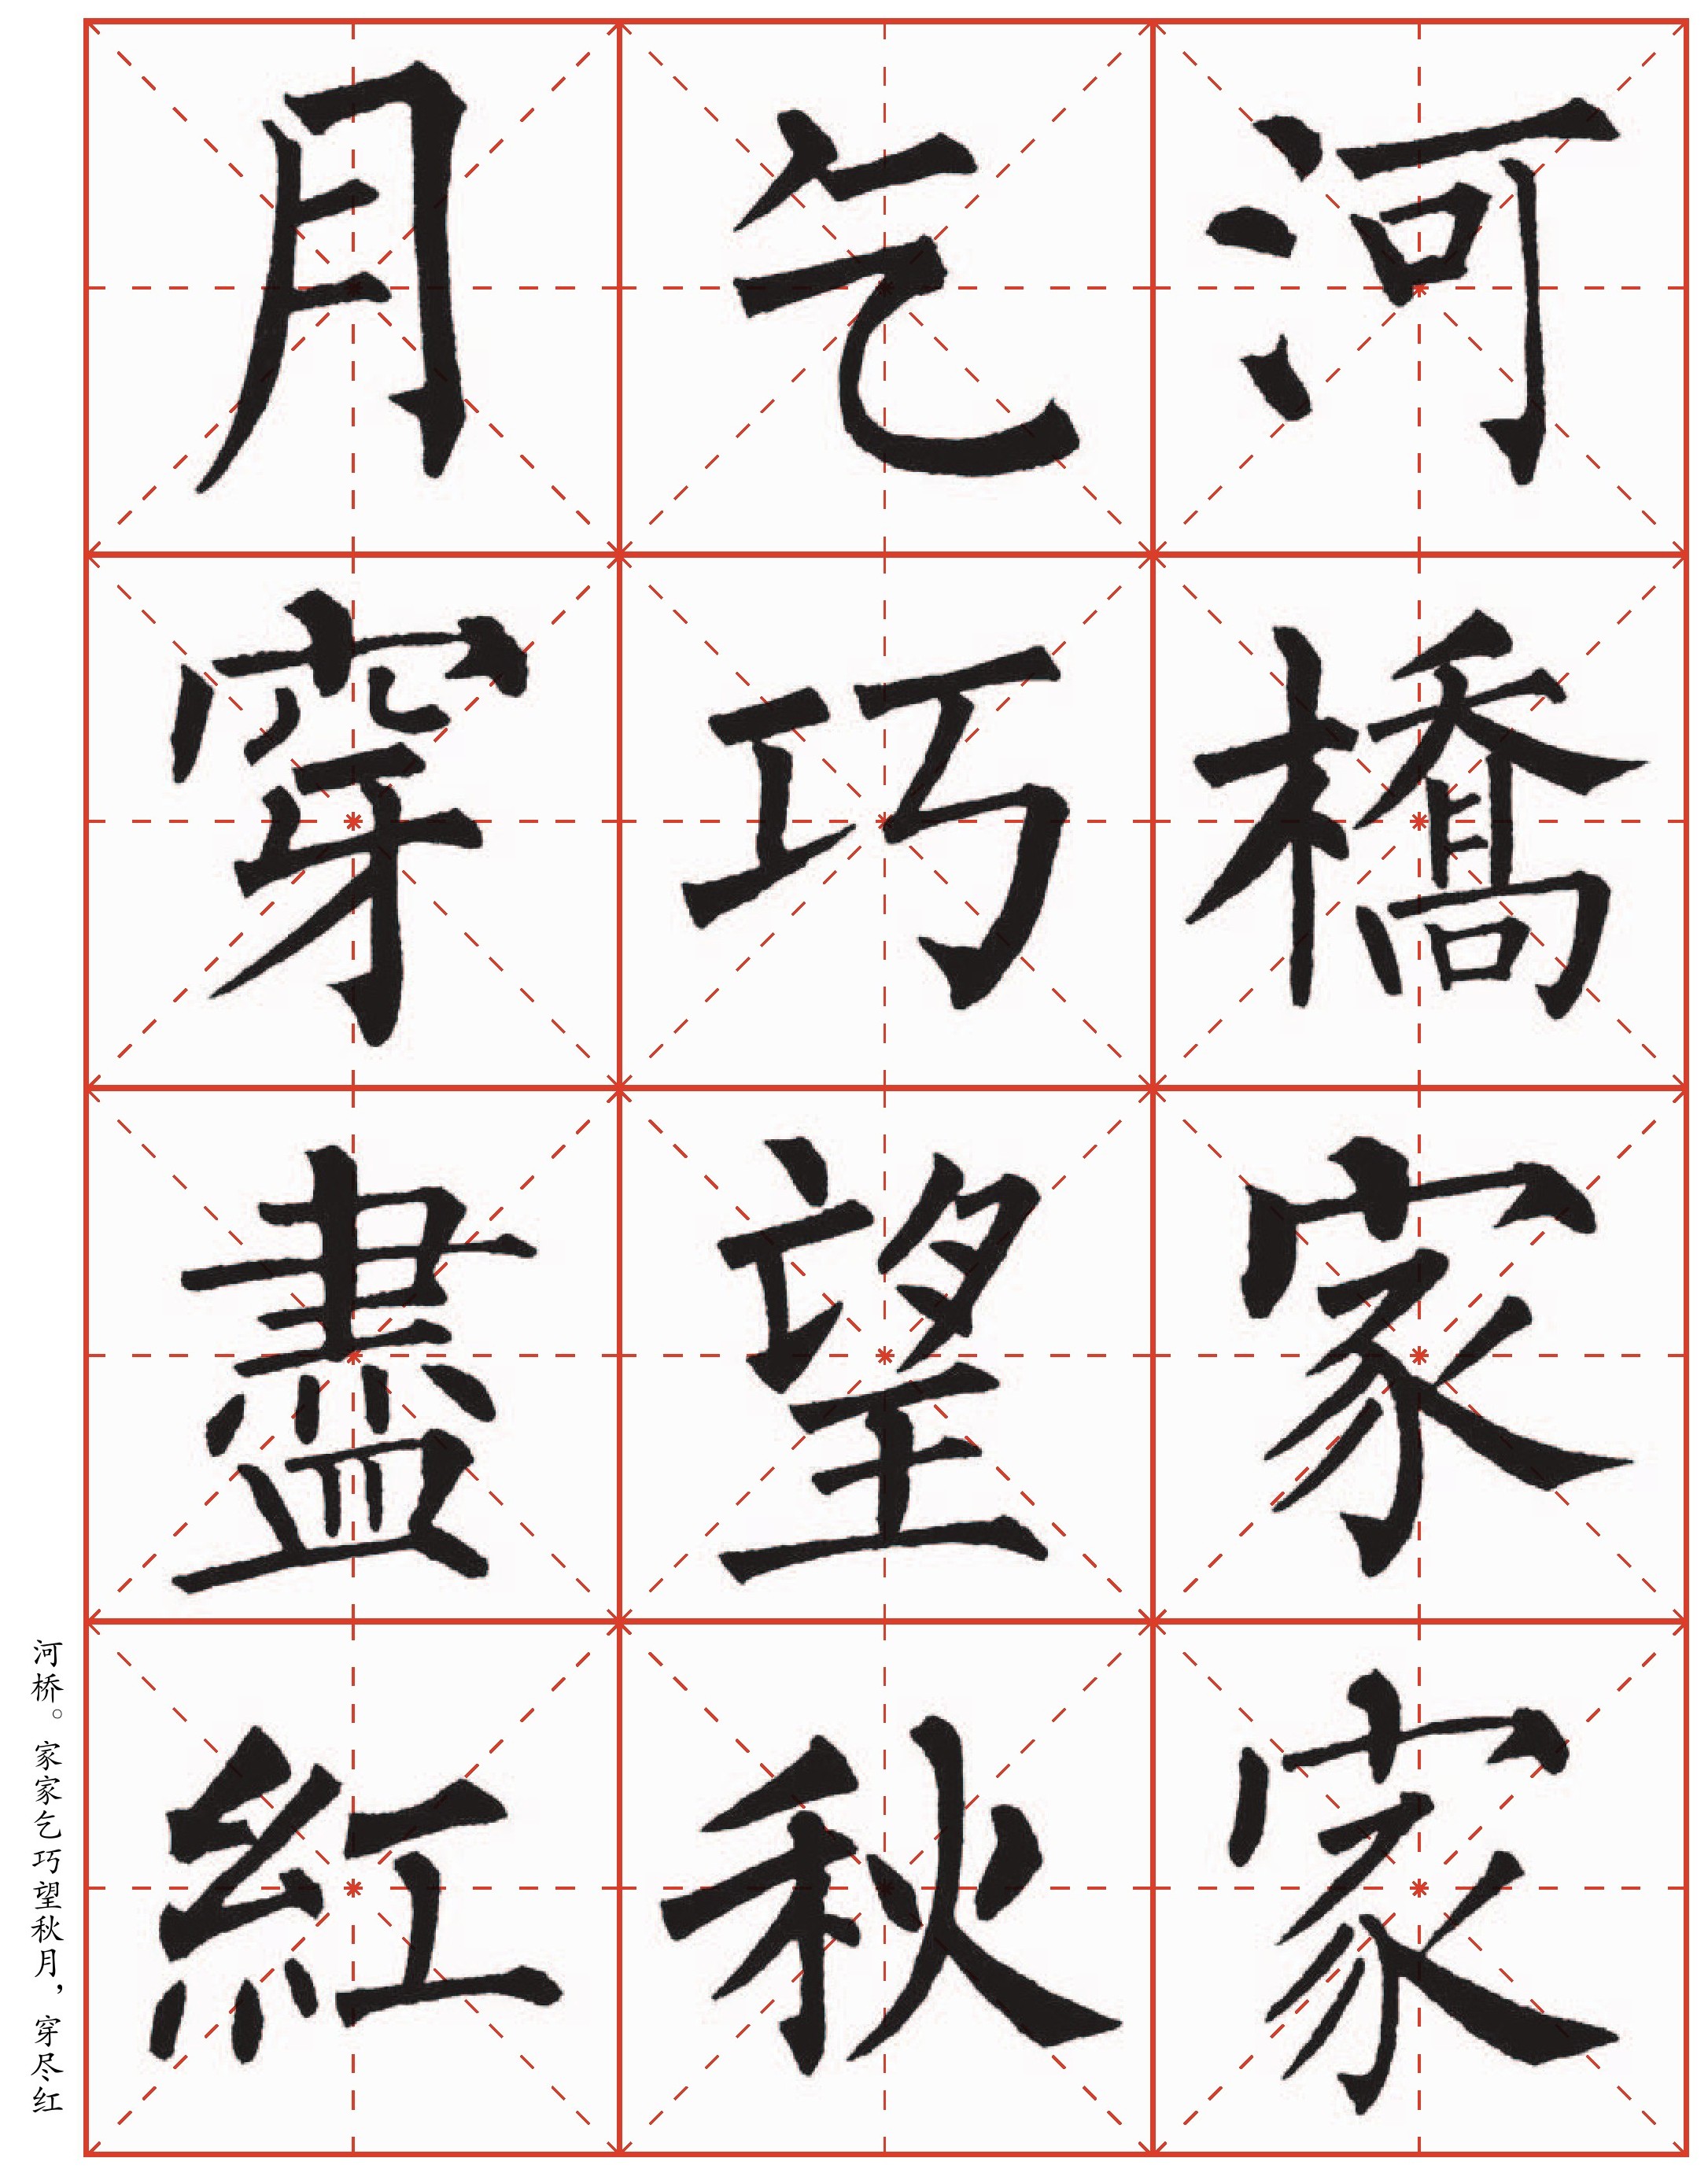 河橋家家
乞巧望秋
月穿盡紅
河桥。家家乞巧望秋月，穿尽红